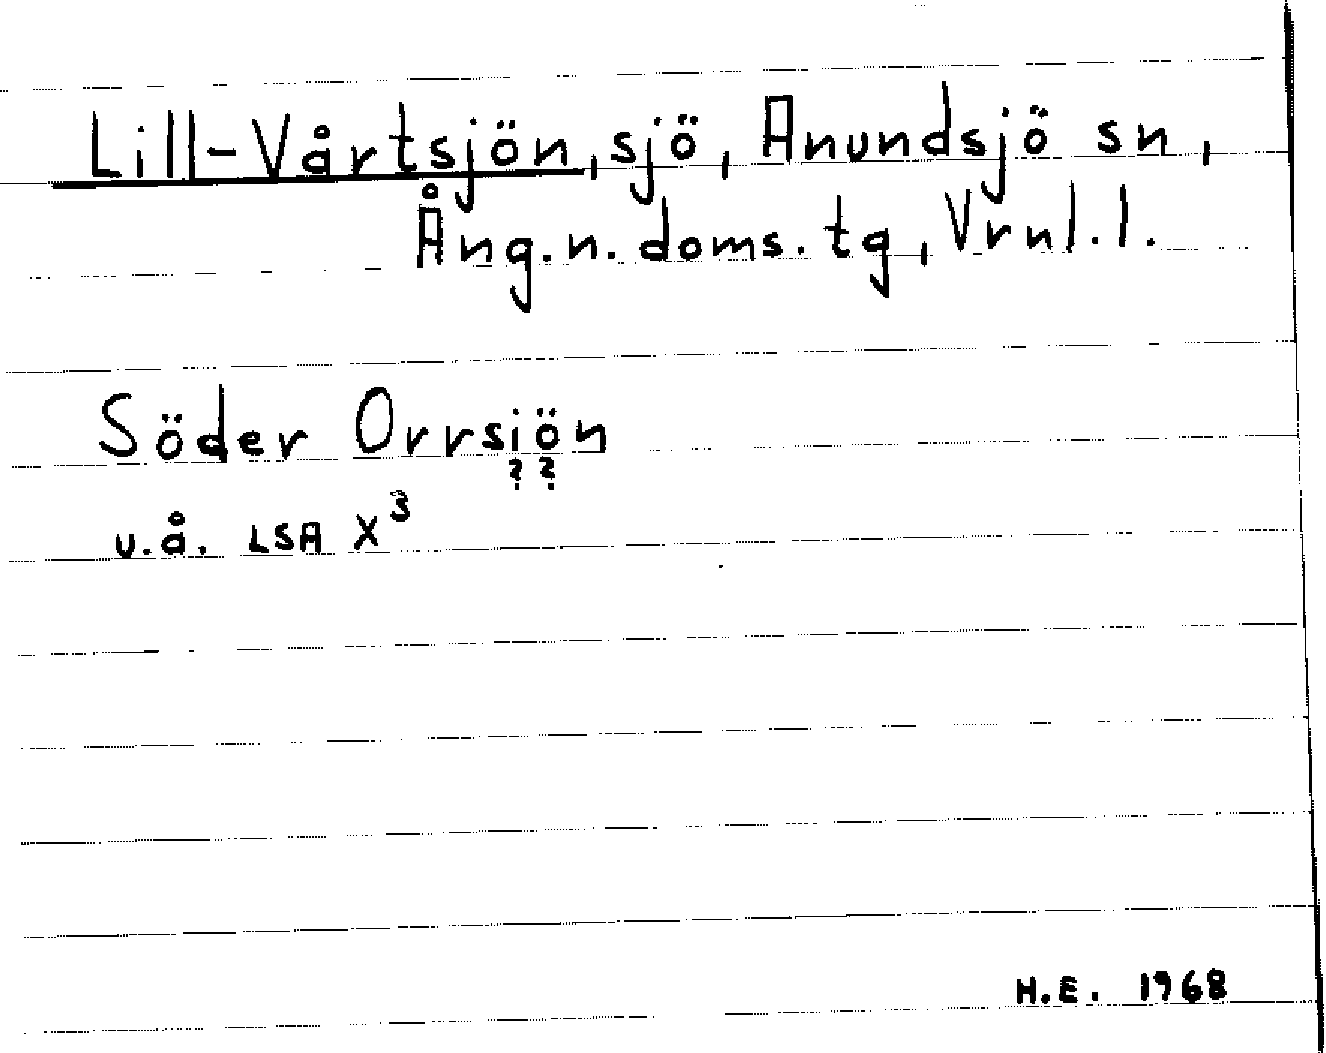 Lill-Vårtsjön, sjö, Anundsjö sn,
Ång.n.doms.tg, Vrnl.l.
Söder Orrsiön
? ?
u.å. LSA X³
H.E. 1968